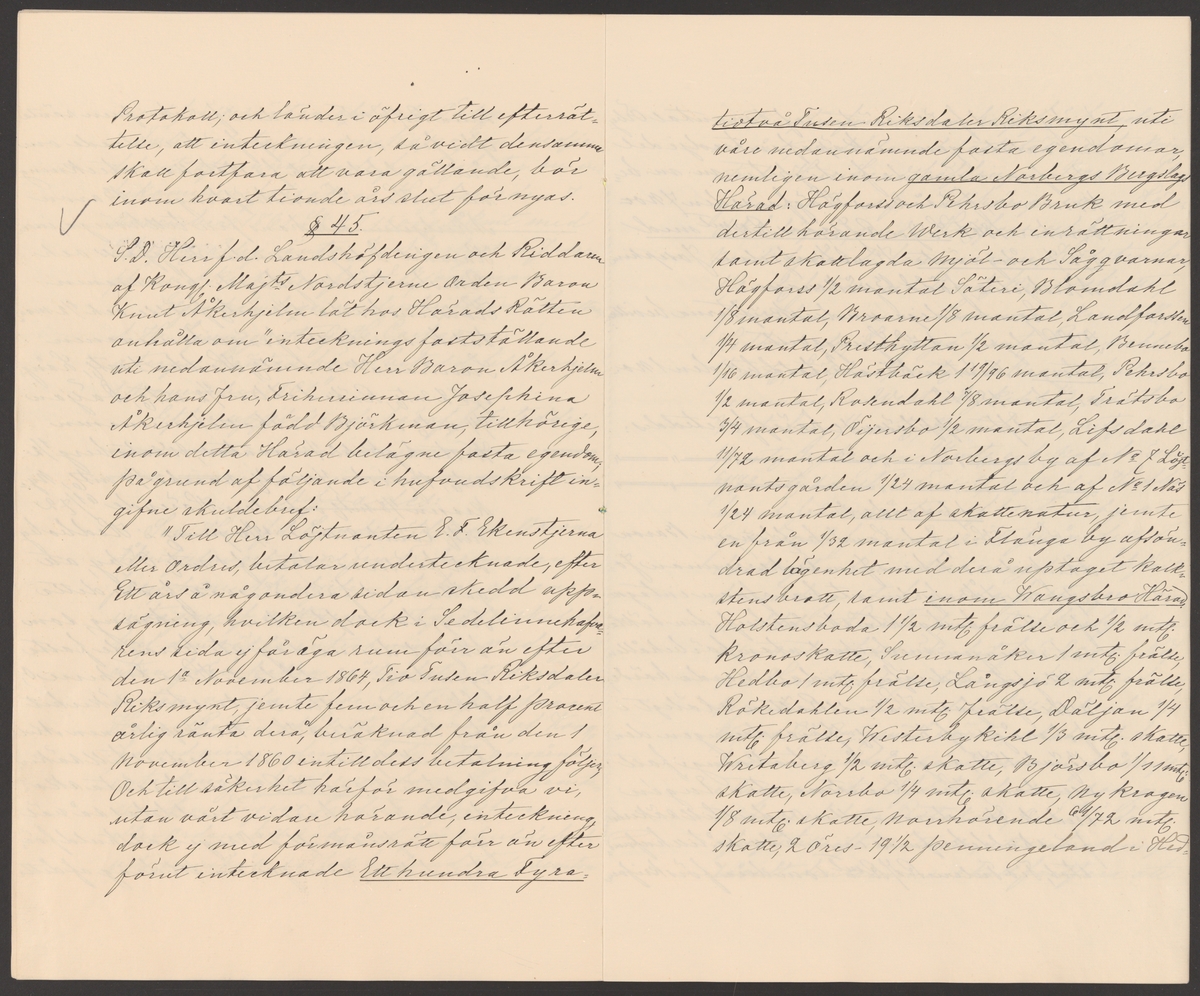 Protokoll; och länder i öfrigt till efterrät-
telse, att inteckningen, så vidt densamma
skall fortfara att vara gällande, bör
inom hvart tionde års slut förnyas.
§ 45.
S.D. Herr f.d. Landshöfdingen och Riddaren
af Kongl. Majts Nordstjerne Orden Baron
Knut Åkerhjelm lät hos Härads Rätten
anhålla om intecknings fastställande
uti nedannämnde Herr Baron Åkerhjelm
och hans fru, Friherrinnan Josephina
Åkerhjelm född Björkman, tillhörige,
inom detta Härad belägne fasta egendom;
på grund af följande i hufvudskrift in-
gifne skuldebref:
"Till Herr Löjtnanten E. F. Ekenstjerna
eller Ordres, betalar undertecknade, efter
Ett års å någondera sidan skedd upp-
sägning, hvilken dock i Sedelinnehafva-
rens sida ej får äga rum förr än efter
den 1a November 1864, Tio Tusen Riksdaler
Riksmynt, jemte fem och en half procent
årlig ränta derå, beräknad från den 1
November 1860 intill dess betalning följer;
Och till säkerhet härför medgifva vi,
utan vårt vidare hörande, inteckning,
dock ej med förmånsrätt förr än efter
förut intecknade Ett hundra Fyra-
tiotvå Tusen Riksdaler Riksmynt, uti
våre nedannämnde fasta egendomar,
nemligen inom gamla Norbergs Bergslags
Härad: Högforss och Pehrsbo Bruk med
dertill hörande Werk och inrättningar
samt skattlagda mjöl- och Sågqvarnar,
Högforss 1/2 mantal Säteri, Blomdahl
1/8 mantal, Broarne 1/8 mantal, Landforsen
1/4 mantal, Presthyttan 1/2 mantal, Bennebo
1/16 mantal, Hästbäck 1 17/96 mantal, Pehrsbo
1/2 mantal, Rosendahl 3/8 mantal, Trätsbo
3/4 mantal, Öijersbo 1/2 mantal, Lifsdahl
11/72 mantal och i Norbergs by af No 7 Löjt-
nantsgården 1/24 mantal och af No 1 Näs
1/24 mantal, allt af skattenatur, jemte
en från 1/32 mantal i Flänga by afsön-
drad lägenhet med derå uptaget kalk-
stensbrott, samt inom Wangsbro Härad,
Holstensboda 1 1/2 mtl frälse och 1/2 mtl
kronoskatte, Sunnanåker 1 mtl frälse,
Hedbo 1 mtl frälse, Långsjö 2 mtl frälse,
Rökedahlen 1/2 mtl frälse, Däljan 1/4
mtl frälse, Westerbykihl 1/3 mtl skatte,
Writaberg 1/2 mtl skatte, Bjorsbo 1/1 mtl
skatte, Norrbo 1/4 mtl skatte, Nykrogen
1/8 mtl skatte, Norrhörende 61/72 mtl
skatte, 2 öres- 19 1/2 penningeland i Hed-